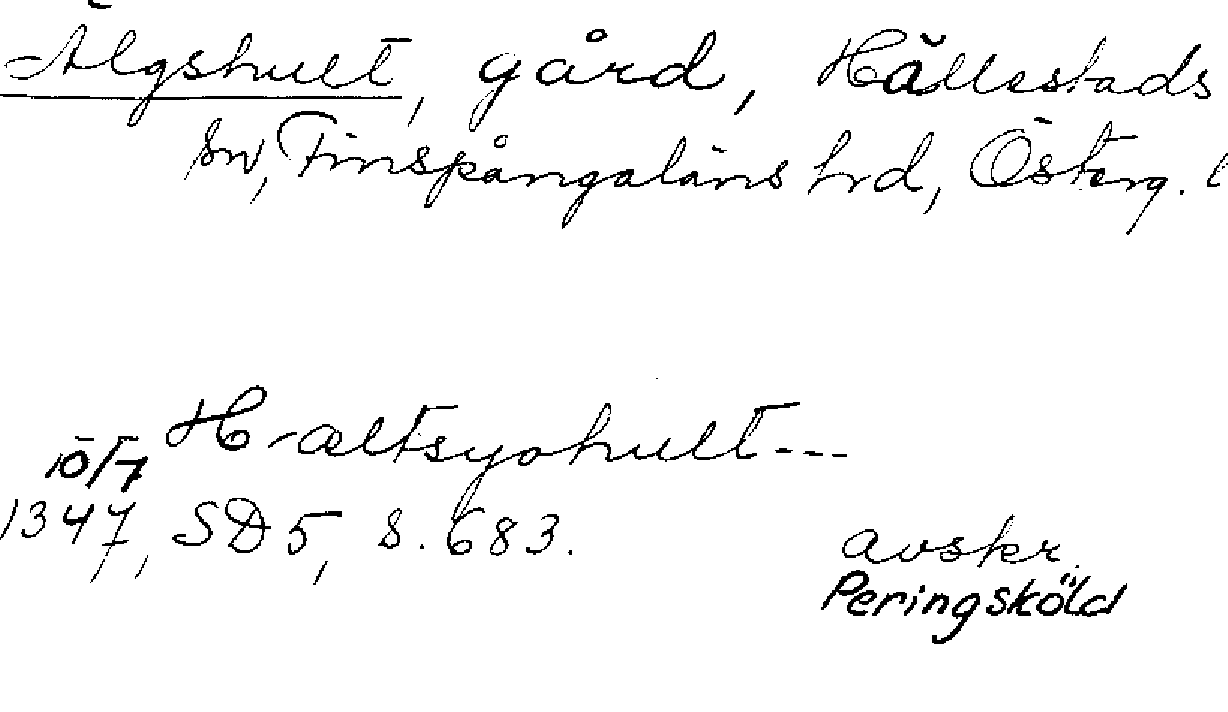 Älgshult, gård, Hällestads
sn, Finspångaläns hrd, Österg. l
H-æltsyohult---
10/7
1347, SD 5, s. 683.
avskr.
Peringsköld